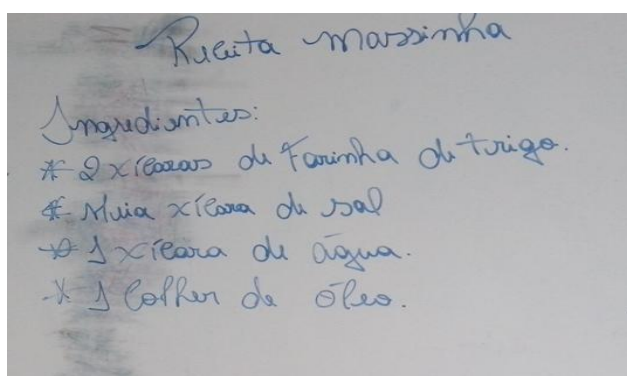 Receita massinha
Ingredientes:
* 2 xícaras de Farinha de trigo.
* Meia xícara de sal
* 1 xícara de água.
* 1 Colher de óleo.